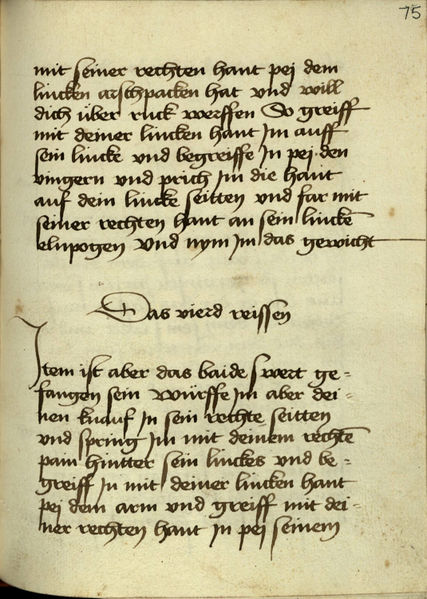 75
mit seiner rechten hant pej dem
lincken arschpacken hat vnd will
dich über ruck werffen So greiff
mit deiner lincken hant Im auff
sein lincke vnd begreiffe In pej den
vingern vnd prich Im die hant
auf dein lincke seitten vnd far mit
seiner rechten hant an sein lincke
elnpogen Vnd nym Im das gewicht
Das vierd reissen
Item ist aber das baide swert ge=
fangen sein würffe Im aber dei=
nen knauf In sein rechte seitten
vnd spring Im mit deinem rechte
pain hintter sein linckes vnd be=
greiff In mit deiner lincken hant
pej dem arm vnd greiff mit dei=
ner rechten hant In pej seinem